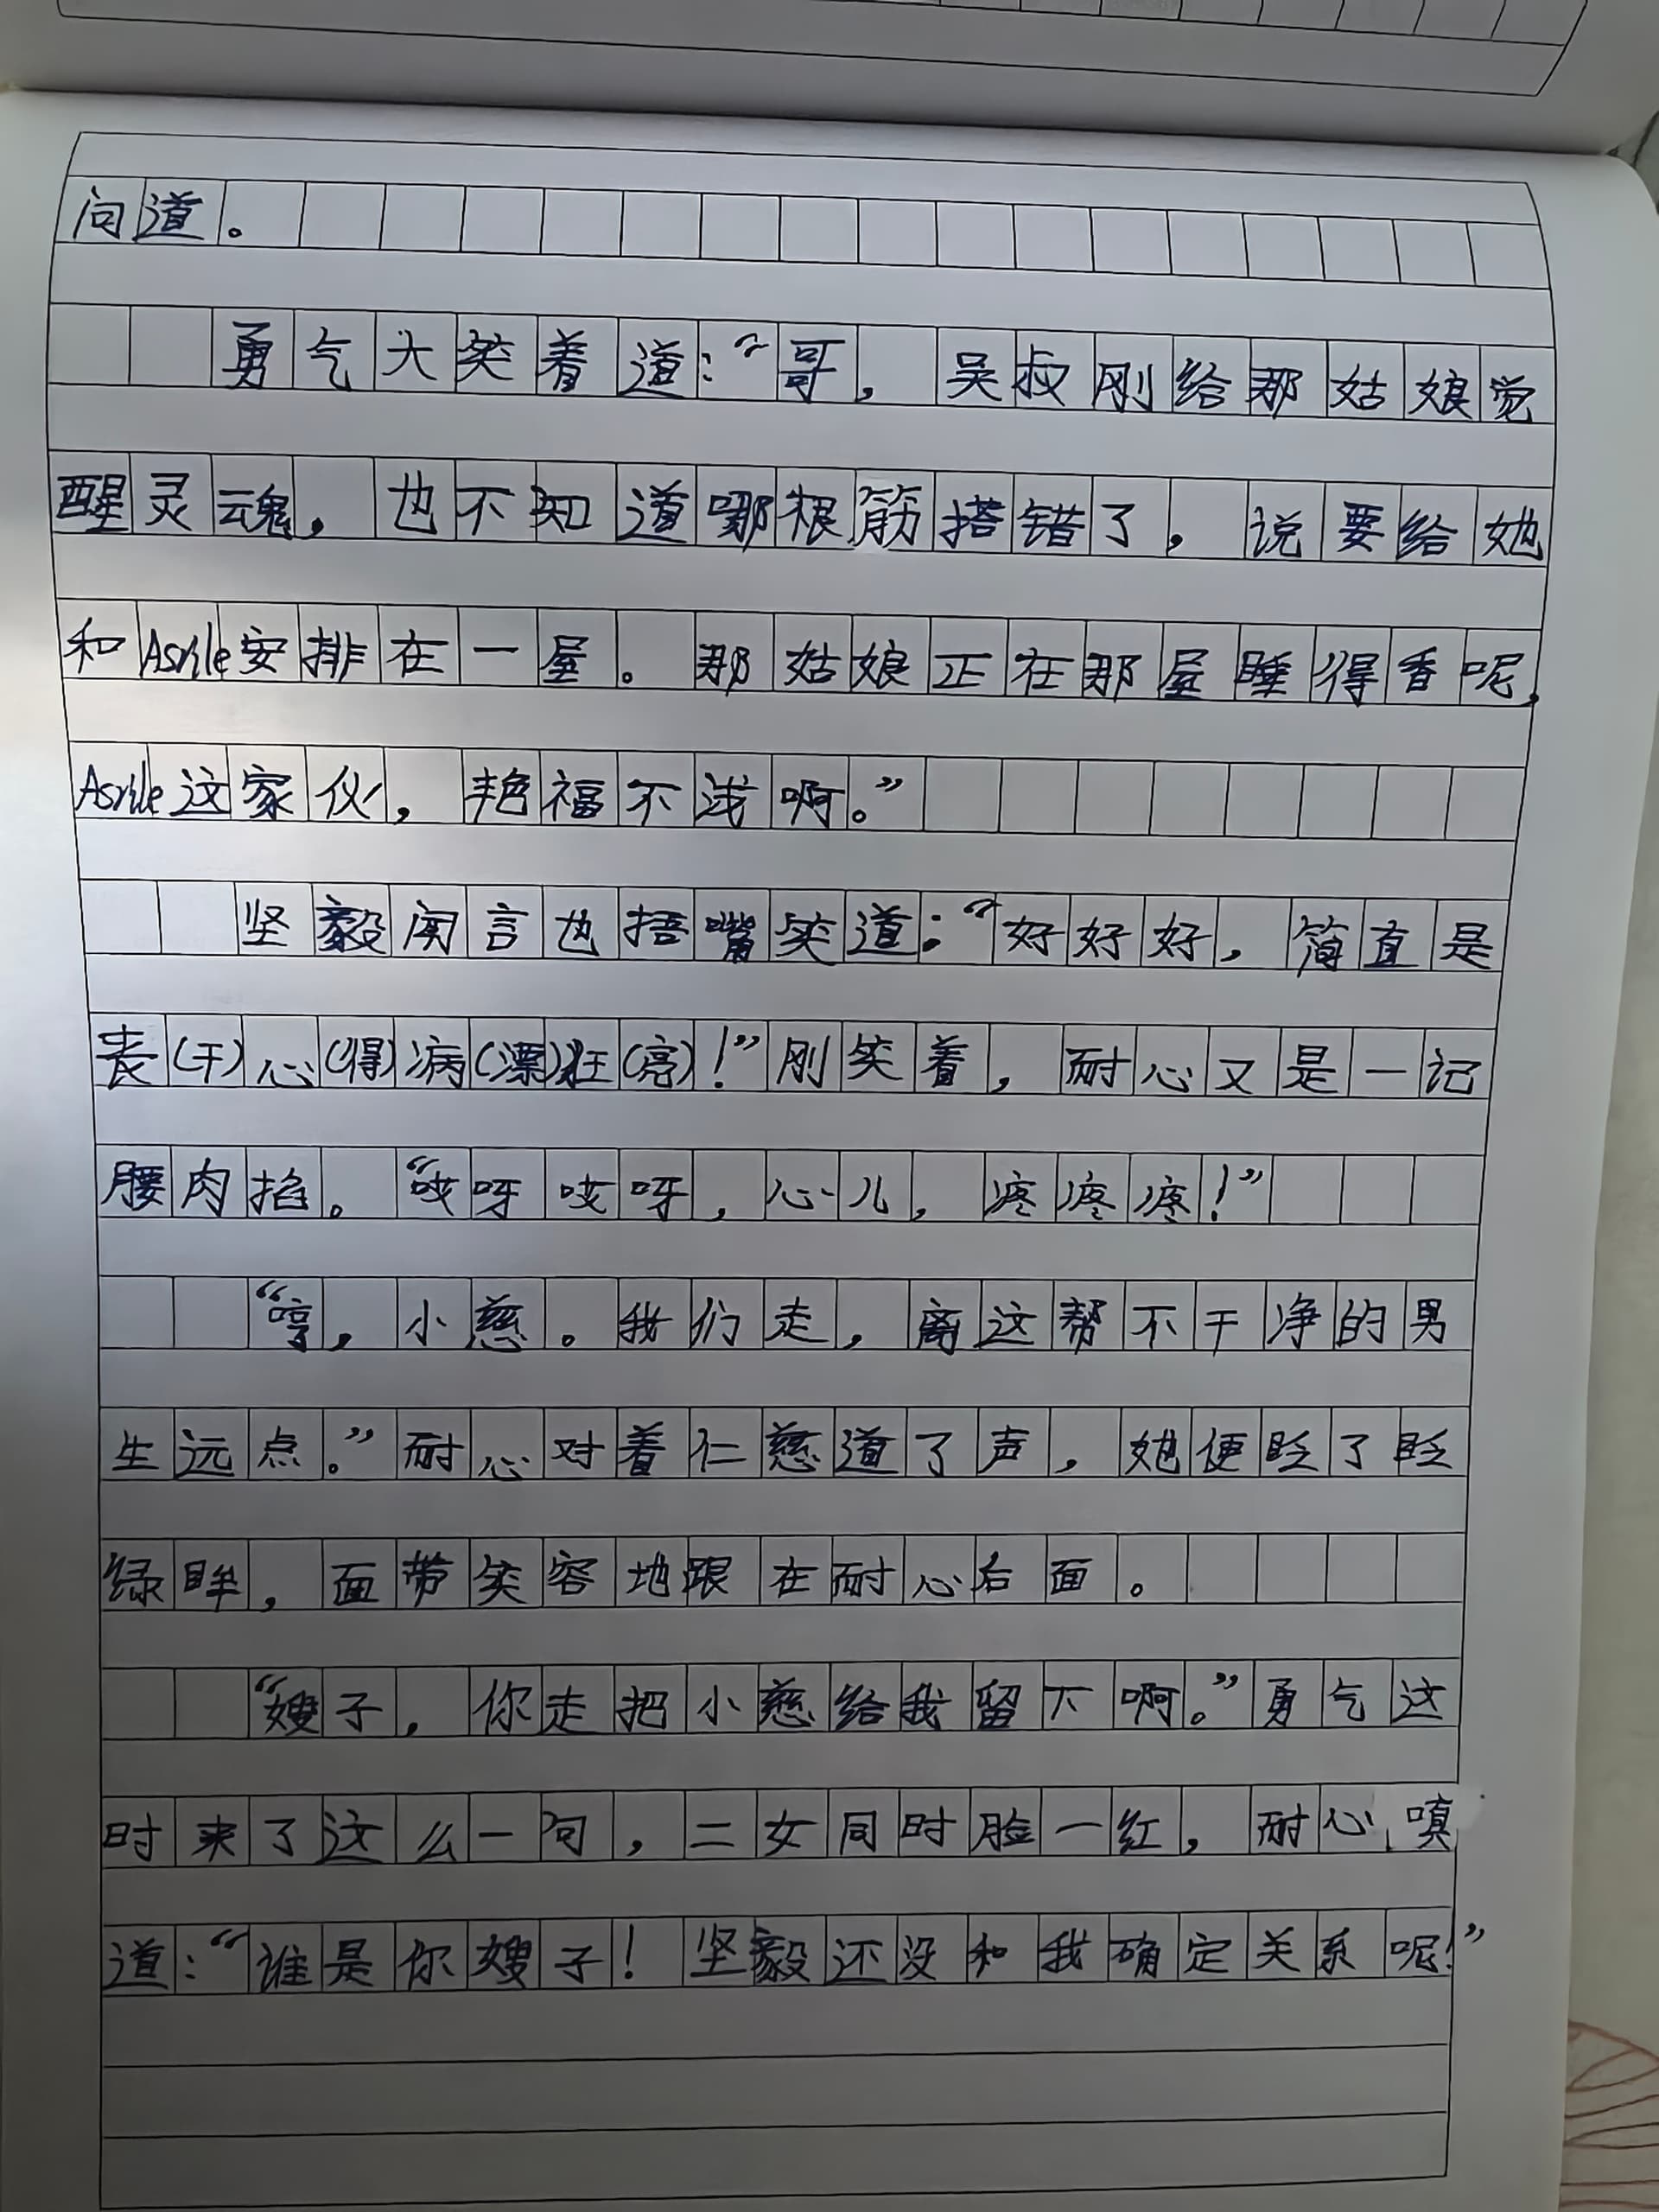 问道。
勇气大笑着道：“哥，吴叔刚给那姑娘觉
醒灵魂，也不知道哪根筋搭错了，说要给她
和Asrile安排在一屋。那姑娘正在那屋睡得香呢，
Asrile这家伙，艳福不浅啊。”
坚毅闻言也捂嘴笑道：“好好好，简直是
丧(干)心(得)病(漂)狂(亮)！”刚笑着，耐心又是一记
腰肉掐。“哎呀哎呀，心儿，疼疼疼！”
“哼，小慈。我们走，离这帮不干净的男
生远点。”耐心对着仁慈道了声，她便眨了眨
绿眸，面带笑容地跟在耐心后面。
“嫂子，你走把小慈给我留下啊。”勇气这
时来了这么一句，二女同时脸一红，耐心嗔
道：“谁是你嫂子！坚毅还没和我确定关系呢！”